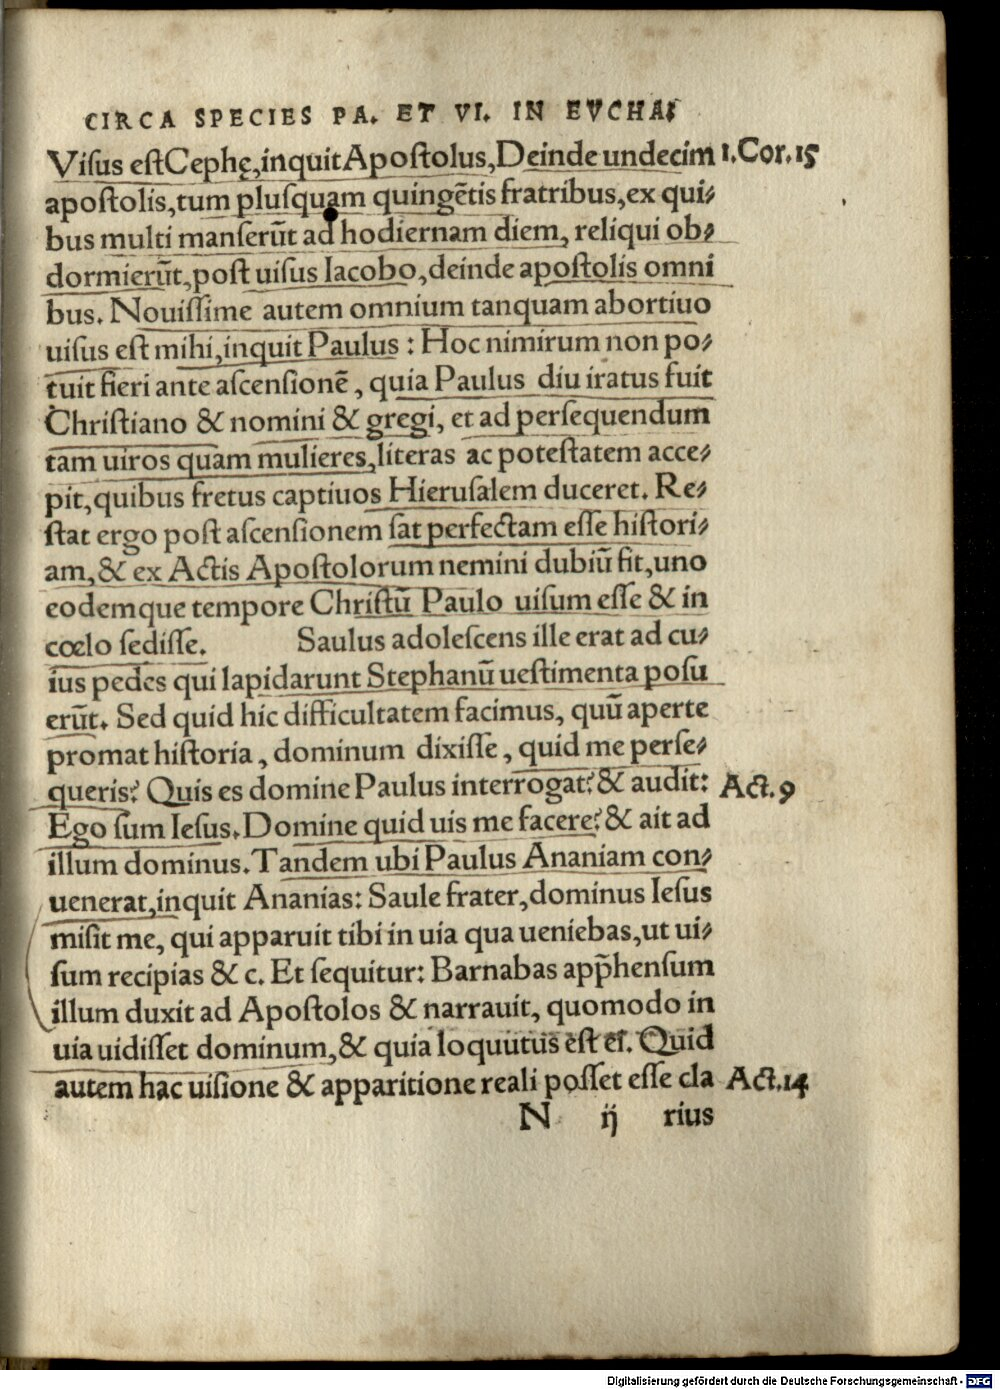 CIRCA SPECIES PA. ET VI. IN EVCHA⸗
Viſus eſt Cephę, inquit Apoſtolus, Deinde undecim 1. Cor. 15
apoſtolis, tum pluſquam quingẽtis fratribus, ex qui⸗
bus multi manſerũt ad hodiernam diem, reliqui ob⸗
dormierũt, poſt uiſus Iacobo, deinde apoſtolis omni
bus. Nouiſſime autem omnium tanquam abortiuo
uiſus eſt mihi, inquit Paulus : Hoc nimirum non po⸗
tuit fieri ante aſcenſionẽ, quia Paulus diu iratus fuit
Chriſtiano & nomini & gregi, et ad perſequendum
tam uiros quam mulieres, literas ac poteſtatem acce⸗
pit, quibus fretus captiuos Hieruſalem duceret. Re⸗
ſtat ergo poſt aſcenſionem ſat perfectam eſſe hiſtori⸗
am, & ex Actis Apoſtolorum nemini dubiũ fit, uno
eodemque tempore Chriſtũ Paulo uiſum eſſe & in
cœlo ſediſſe. Saulus adoleſcens ille erat ad cu⸗
ius pedes qui lapidarunt Stephanũ ueſtimenta poſu
erũt. Sed quid hic difficultatem facimus, quũ aperte
promat hiſtoria, dominum dixiſſe, quid me perſe⸗
queris? Quis es domine Paulus interrogat? & audit: Act. 9
Ego ſum Ieſus. Domine quid uis me facere? & ait ad
illum dominus. Tandem ubi Paulus Ananiam con⸗
uenerat, inquit Ananias: Saule frater, dominus Ieſus
miſit me, qui apparuit tibi in uia qua ueniebas, ut ui⸗
ſum recipias & c. Et ſequitur: Barnabas app̃henſum
illum duxit ad Apoſtolos & narrauit, quomodo in
uia uidiſſet dominum, & quia loquutus eſt ei. Quid
autem hac uiſione & apparitione reali poſſet eſſe cla Act. 14
N ij rius
Digitalisierung gefördert durch die Deutsche Forschungsgemeinschaft - DFG